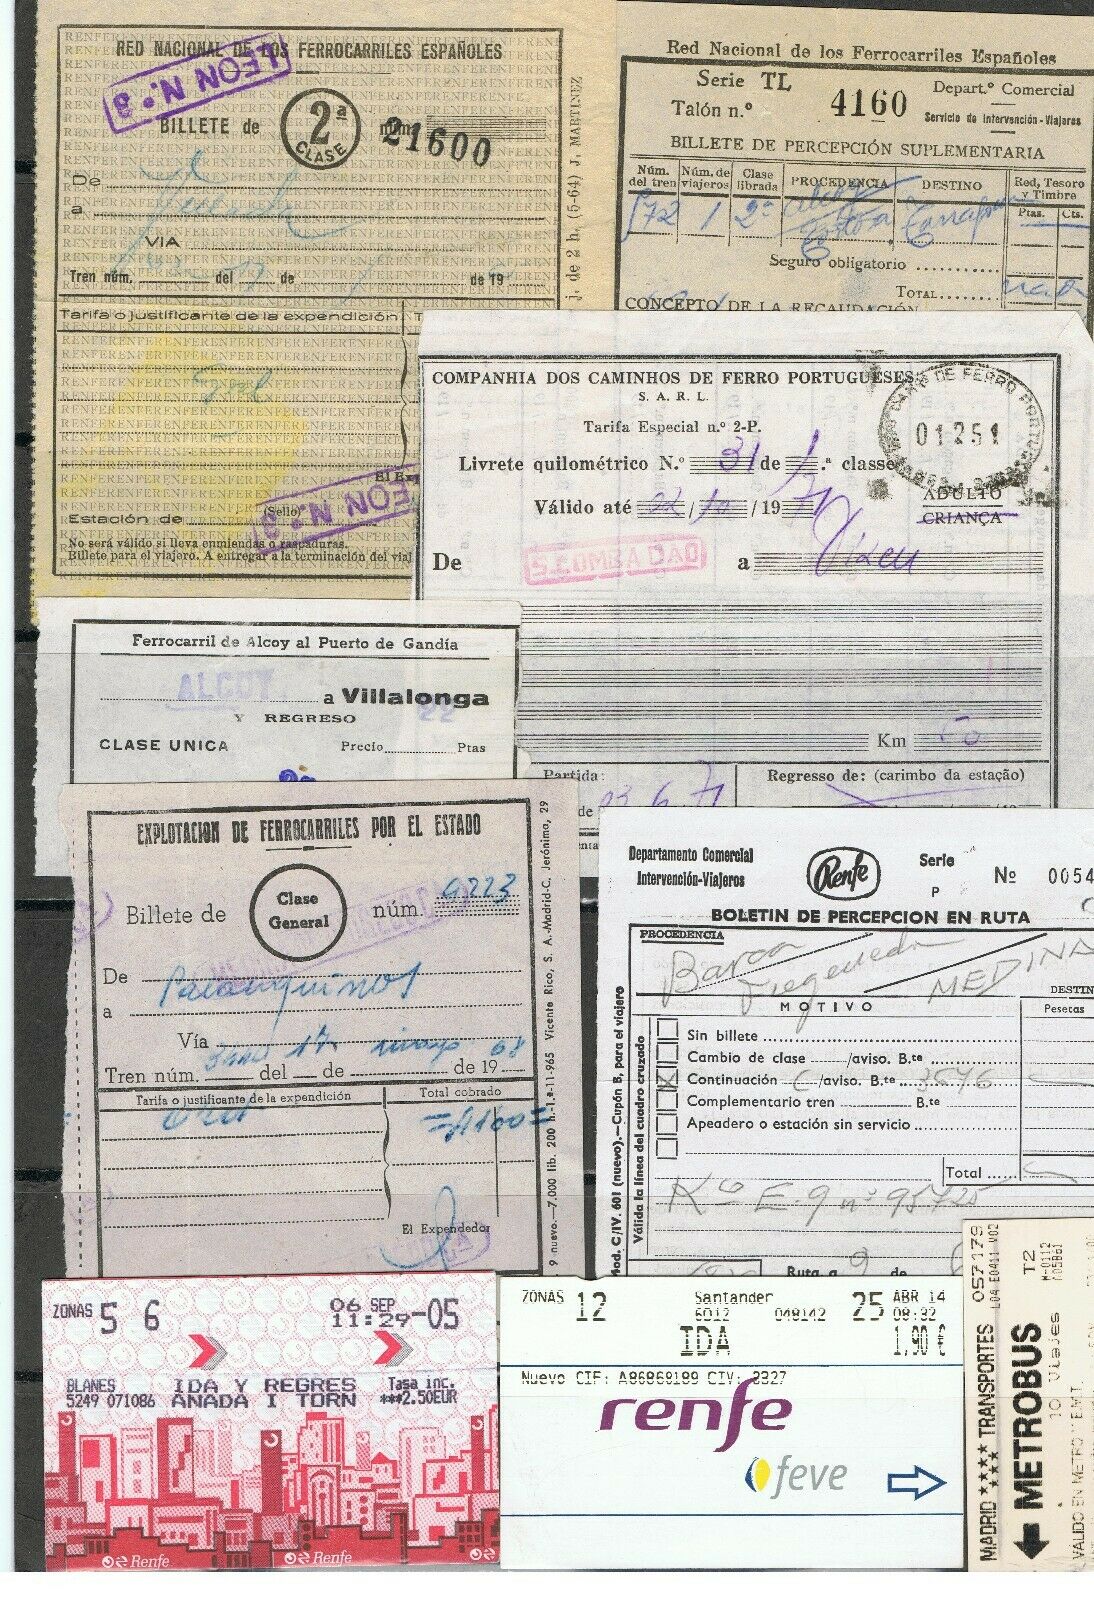 RED NACIONAL DE LOS FERROCARRILES ESPAÑOLES
LEON N.º 8
BILLETE de 2ª CLASE núm. 21600
De
a
VIA
Tren núm. del de de 19
Tarifa o justificante de la expendición
LEON N.º 8
Estación de (Sello)
No será válido si lleva enmiendas o raspaduras.
Billete para el viajero. A entregar a la terminación del viaj
j. de 2 h. (5-64) J. MARTINEZ
Red Nacional de los Ferrocarriles Españoles
Serie TL
Talón n.º 4160
Depart.º Comercial
Servicio de Intervención-Viajeros
BILLETE DE PERCEPCIÓN SUPLEMENTARIA
Núm. del tren Núm. de viajeros Clase librada PROCEDENCIA DESTINO Red, Tesoro y Timbre
Ptas. Cts.
572 1 2ª
Seguro obligatorio
TOTAL
CONCEPTO DE LA RECAUDACIÓN
COMPANHIA DOS CAMINHOS DE FERRO PORTUGUESES
S. A. R. L.
01251
Tarifa Especial n.º 2-P.
Livrete quilométrico N.º 31 de 1.ª classe
Válido até 02/10/1971
ADULTO
CRIANÇA
De S. COMBA DAO a Viseu
Km 60
Partida:
Regresso de: (carimbo da estação)
de 03 6 71
Ferrocarril de Alcoy al Puerto de Gandía
ALCOY a Villalonga
Y REGRESO 22
CLASE UNICA Precio Ptas
EXPLOTACION DE FERROCARRILES POR EL ESTADO
Billete de Clase General núm. 9223
De
a Palanquinos
Vía
Tren núm. del 17 de mayo de 19 68
Tarifa o justificante de la expendición Total cobrado
=4100=
El Expendedor
9 nuevo.—7.000 lib. 200 h.-1.ª-11-965 Vicente Rico, S. A.-Madrid-C. Jerónima, 29
Departamento Comercial
Intervención-Viajeros
Renfe
Serie
P
Nº 0054
BOLETIN DE PERCEPCION EN RUTA
PROCEDENCIA
Barca
MEDINA
DESTIN
MOTIVO Pesetas
Sin billete
Cambio de clase /aviso. B.te
Continuación /aviso. B.te 3676
Complementario tren B.te
Apeadero o estación sin servicio
Total
Kº E-9 nº 95725
Ruta a 9 de
Mod. C/IV. 601 (nuevo).—Cupón B, para el viajero
Válida la línea del cuadro cruzado
ZONAS 5 6
06 SEP
11:29-05
BLANES
5249 071086
IDA Y REGRES
ANADA I TORN
Tasa inc.
***2.50EUR
Renfe
Renfe
ZONAS 12
Santander
6012 048142
25 ABR 14
08:32
IDA
1,90 €
Nuevo CIF: A86868189 CIV: 3327
renfe
feve
057179
L04 E0411 V02
T2
M-0112
MADRID **** TRANSPORTES
METROBUS
10 viajes
VALIDO EN METRO Y E.M.T.